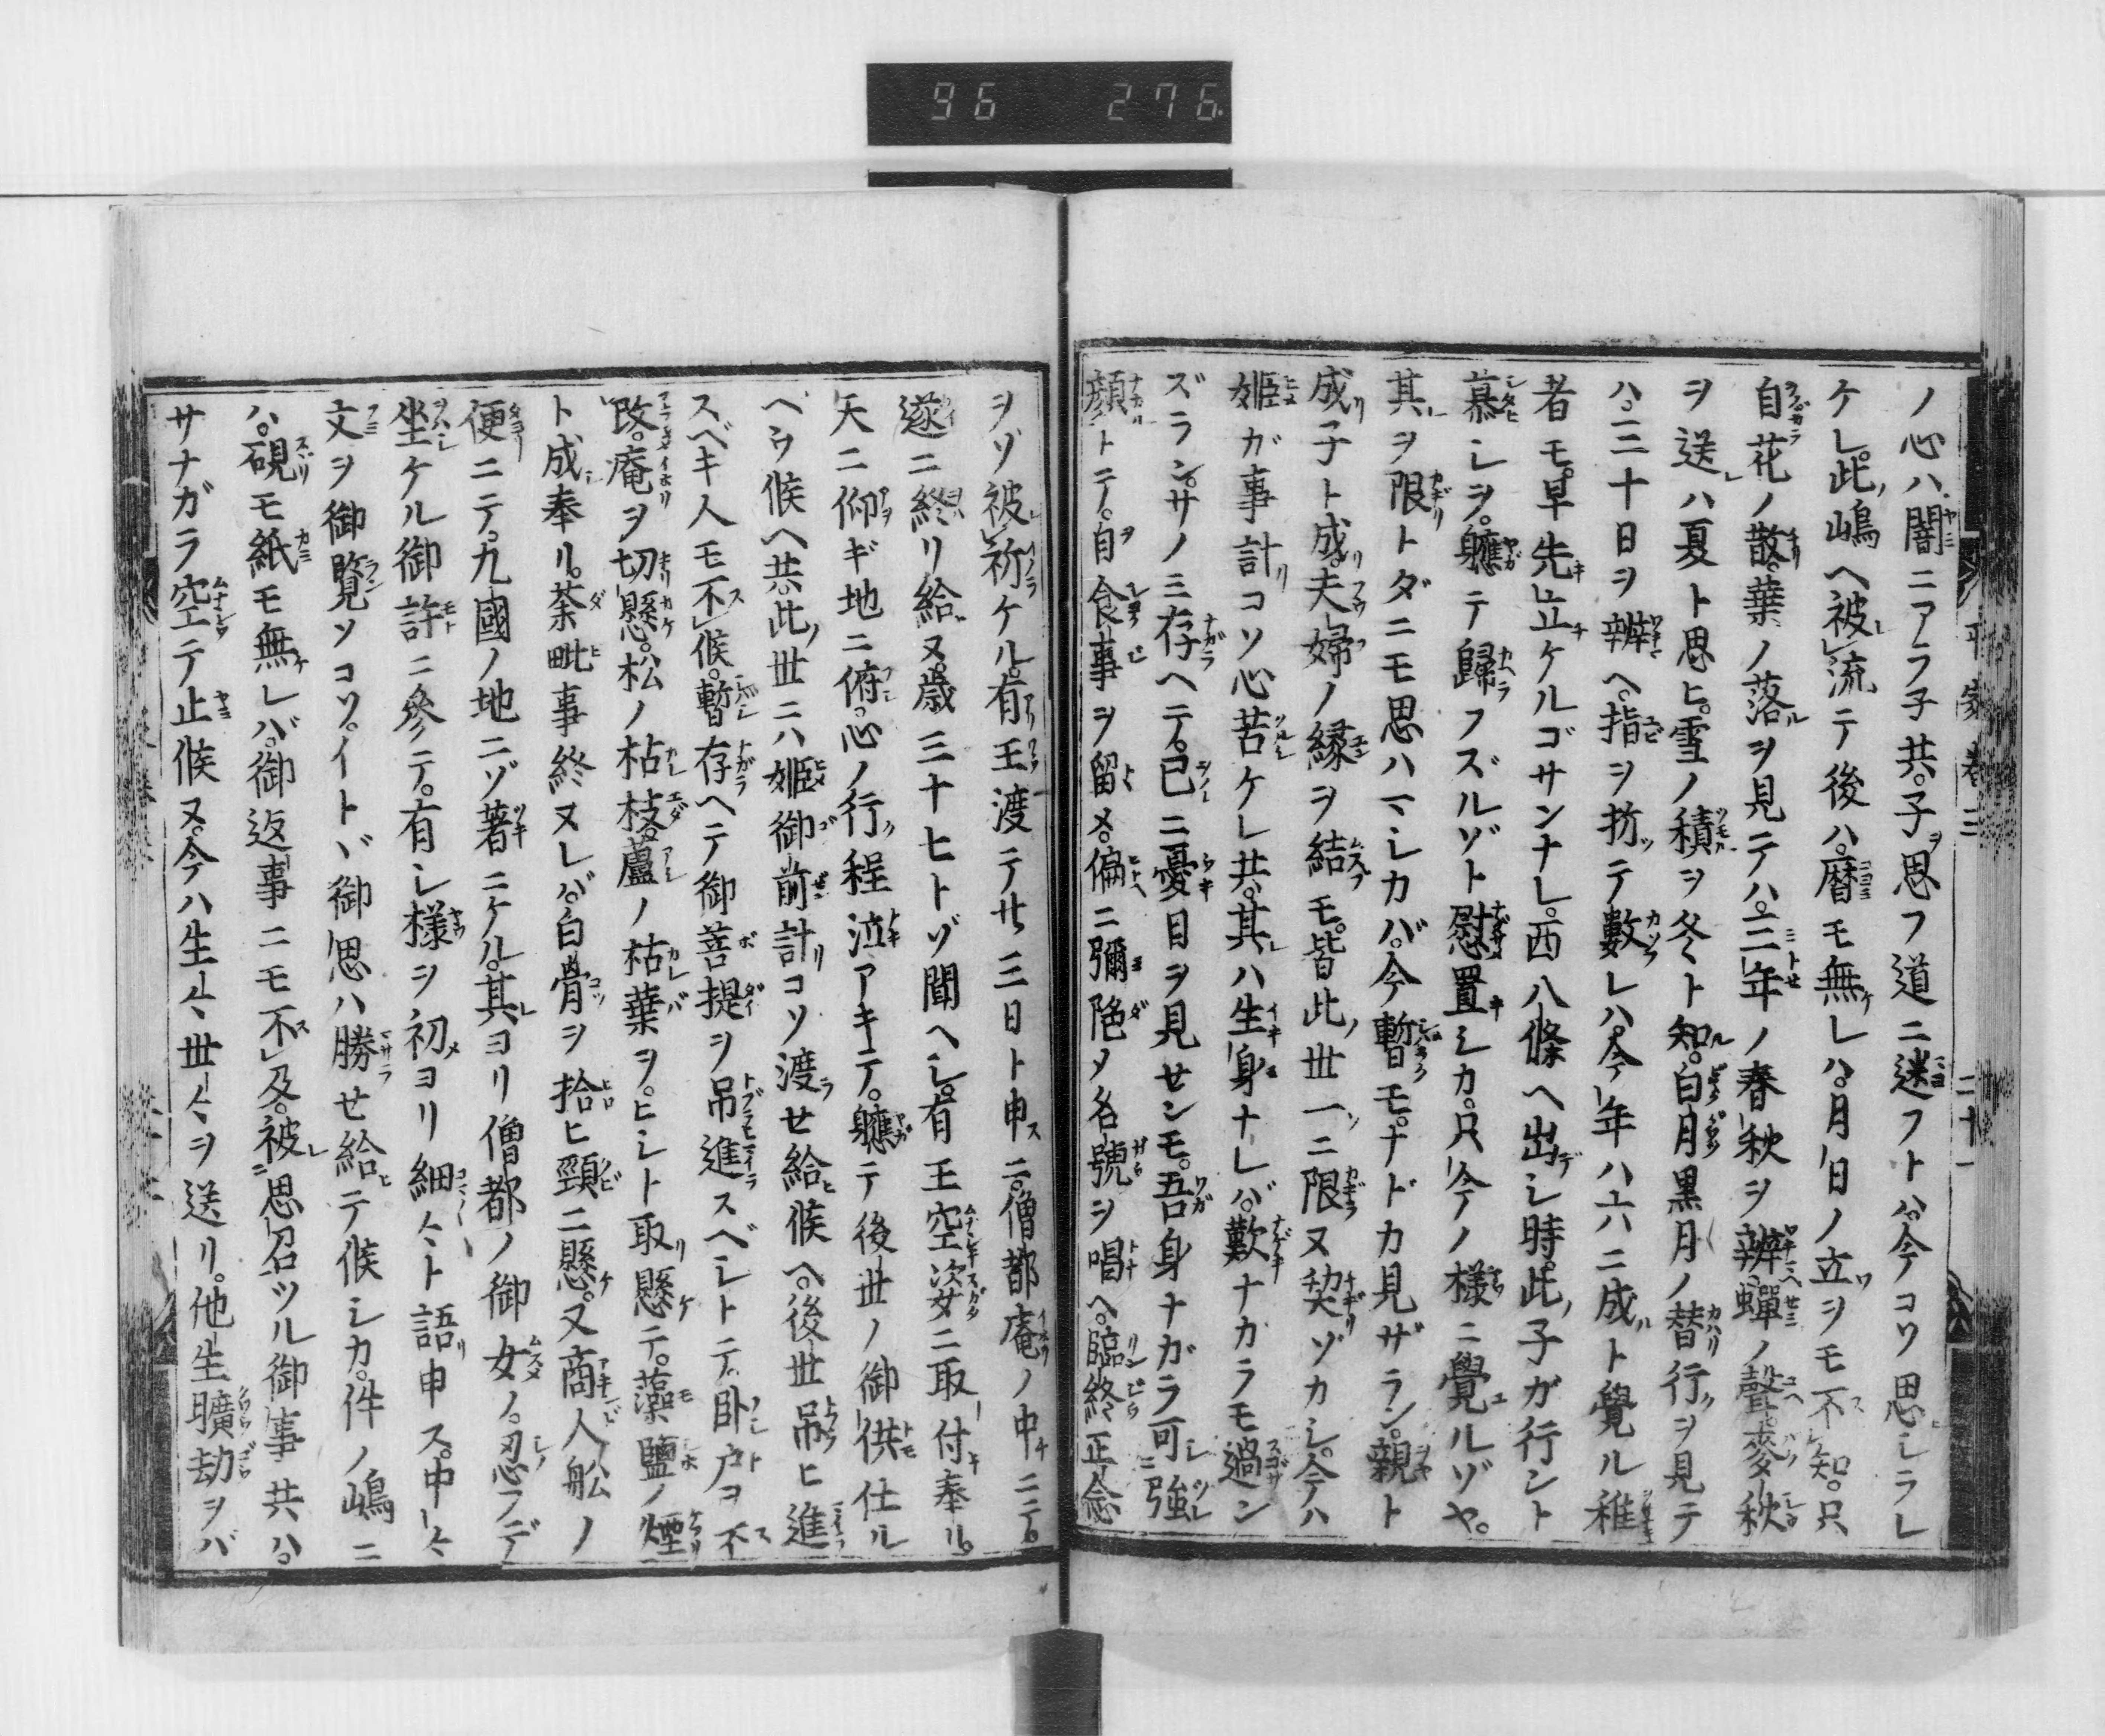 96 276
平家巻三 二十一
ノ心ハ闇ニアラ子共。子ヲ思フ道ニ迷フトハ。今コソ思シラレ
ケレ。此嶋ヘ被流テ後ハ。暦モ無レハ。月日ノ立ヲモ不知。只
自花ノ散。葉ノ落ヲ見テハ。三年ノ春秋ヲ辨。蟬ノ聲麥秋
ヲ送レハ夏ト思ヒ。雪ノ積ヲ冬ト知。白月黒月ノ替行ヲ見テ
ハ。三十日ヲ辨ヘ。指ヲ折テ數レハ。今年ハ六ニ成ト覺ル稚
者モ。早先立ケルゴサンナレ。西八條ヘ出シ時。此子ガ行ント
慕シヲ。軈テ歸フズルゾト慰置シカ。只今ノ樣ニ覺ルゾヤ。
其ヲ限トダニモ思ハマシカバ。今暫モ。ナドカ見ザラン。親ト
成子ト成。夫婦ノ縁ヲ結モ。皆此世一ニ限ヌ契ゾカシ。今ハ
姫ガ事計コソ心苦ケレ共。其ハ生身ナレバ。歎ナカラモ過ン
ズラン。サノミ存ヘテ。己ニ憂目ヲ見センモ。吾身ナガラ可強
顔トテ。自食事ヲ留メ。偏ニ彌陁ノ名號ヲ唱ヘ。臨終正念
ヲゾ被祈ケル。有王渡テ廿三日ト申ニ。僧都庵ノ中ニテ。
遂ニ終リ給ヌ。歳三十七トゾ聞ヘシ。有王空姿ニ取付奉ル。
天ニ仰ギ地ニ俯。心ノ行程泣アキテ。軈テ後世ノ御供仕ル
ヘウ候ヘ共。此世ニハ姫御前計コソ渡セ給候ヘ。後世吊ヒ進
スベキ人モ不候。暫存ヘテ御菩提ヲ吊進スベシトテ。卧戸ヲ不
改。庵ヲ切懸。松ノ枯枝。蘆ノ枯葉ヲ。ヒシト取懸テ。藻鹽ノ煙
ト成奉リ。荼毗事終ヌレバ。白骨ヲ拾ヒ頸ニ懸。又商人舩ノ
便ニテ。九國ノ地ニゾ著ニケル。其ヨリ僧都ノ御女ノ。忍デ
坐ケル御許ニ參テ。有シ樣ヲ初ヨリ細々ト語申ス。中々
文ヲ御覽ソコソ。イトヾ御思ハ勝セ給テ候シカ。件ノ嶋ニ
ハ。硯モ紙モ無レバ。御返事ニモ不及。被思召ツル御事共ハ。
サナガラ空テ止候ヌ。今ハ生々世々ヲ送リ。他生曠劫ヲバ